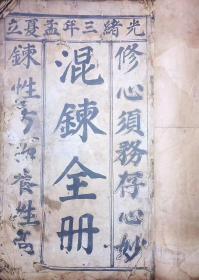 光緒三年孟夏立
修心須務存心妙
混鍊全册
鍊性
養性